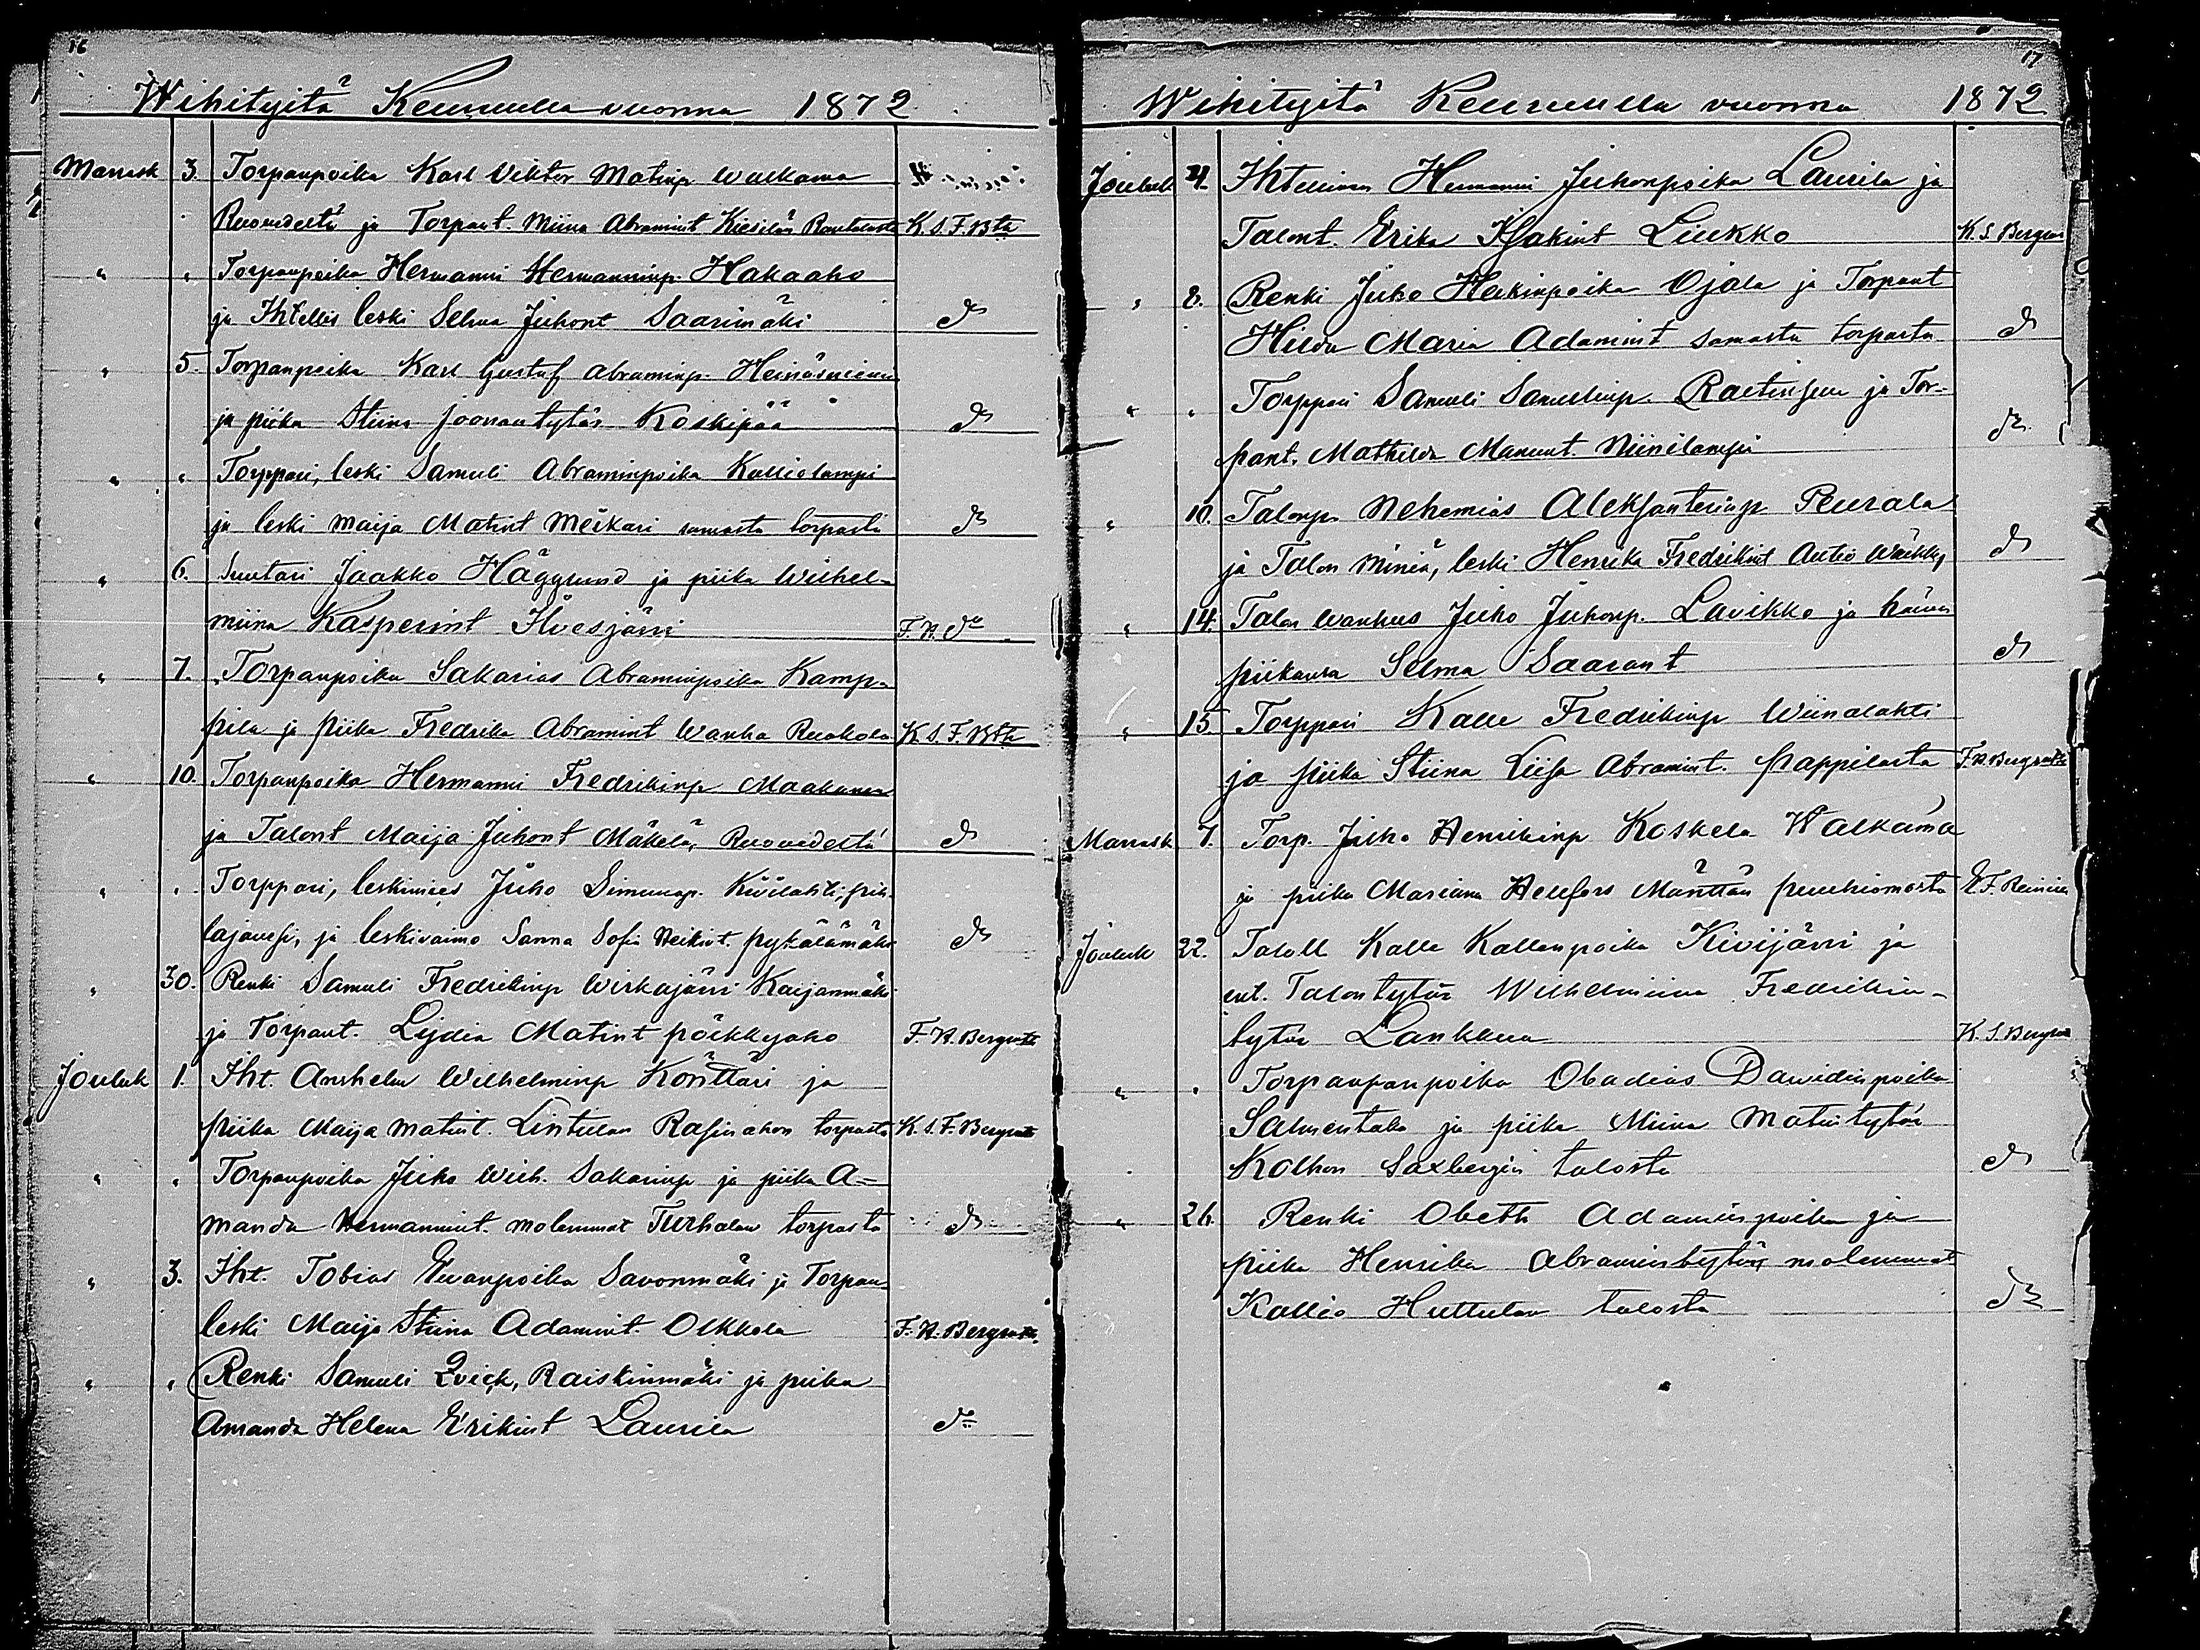 16
Wihityitä Keuruulla vuonna 1872
Marrask 3. Torpanpoika Karl Viktor Matinp Walkama
Ruovedeltä ja Torpant. Miina Abramint Kiesilän Rantalasta K. S. F. Bth
" " Torpanpoika Hermanni Hermanninp. Hakaaho
ja Ihtellis leski Selma Juhont Saarimäki do
" 5. Torpanpoika Karl Gustaf Abraminp.
ja piika Stiina Joonantytär Koskipää do
" " Torppari, leski Samuli Abraminpoika Kalliolampi
ja leski Maija Matint Meskari samasta torpasta do
" 6. Suutari Jaakko Hägglund ja piika Wilhel-
miina Kasperint Ilvesjärvi F. H. do
" 7. Torpanpoika Sakarias Abraminpoika Kamp-
pila ja piika Fredrika Abramint Wanha Ruokola K. S. F. Bth
" 10. Torpanpoika Hermanni Fredrikinp Maakanen
ja Talont Maija Juhont Mäkelä, Ruovedeltä do
" " Torppari, leskimies Juho Simunap. Kivilahti, pih-
lajavesi, ja leskivaimo Sanna Sofia Heikint. pykälämäki do
" 30. Renki Samuli Fredrikinp Wirkajärvi Kaijanmäki
ja Torpant. Lydia Matint pöikkyaho F. H. Bergroth
Jouluk 1. Iht. Anshelm Wilhelminp Könttäri ja
piika Maija Matint. Lintulan Rasinahon torpasta K. S. F. Bergroth
" " Torpanpoika Juho Wilh. Sakarinp ja piika A-
manda Hermannint. molemmat Turhalan torpasta do
" 3. Iht. Tobias Ewanpoika Savonmäki ja Torpan
leski Maija Stiina Adamint. Olkkola F. H. Bergroth
" " Renki Samuli Qvick, Raiskinmäki ja piika
Amanda Helena Erikint Laurila do
17
Wihityitä Keuruulla vuonna 1872
Jouluk 4. Ihtellinen Hermanni Juhonpoika Laurila ja
Talont. Erika Isakint Liukko K. S. Bergroth
" 8. Renki Juho Heikinpoika Ojala ja Torpant
Hilda Maria Adamint samasta torpasta do
" " Torppari Samuli Samulinp. ja Tor-
pant. Mathilda Manunt. Niinilampi do
" 10. Talonp. Nehemias Aleksanterinp Peurala
ja Talon miniä, leski Henrika Fredrikint Autio do
" 14. Talon wanhus Juho Juhonp. Lavikko ja hänen
piikansa Selma Saarant do
" 15 Torppari Kalle Fredrikinp Wiinalahti
ja piika Stiina Liisa Abramint. pappilasta F. H. Bergroth
Marrask 7. Torp. Juho Henrikinp Koskela Walkama
ja piika Mariana Mänttän puuhiomosta
Jouluk 22. Taloll Kalle Kallenpoika Kivijärvi ja
ent. Talontytär Wilhelmiina Fredrikin-
tytär Lankkua K. S. Bergroth
" " Torpanpanpoika Obadias Dawidinpoika
Salmentaka ja piika Miina Matintytär
Kolhon Saxbergin talosta do
" 26. Renki Obeth Adaminpoika ja
piika Henrika Abramintytär molemmat
Kallio Huttulan talosta do